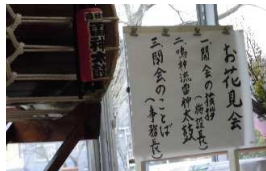 お花見会
一、開会の挨拶
(施設長)
二、鳴神流雷神太鼓
三、閉会のことば
(事務長)